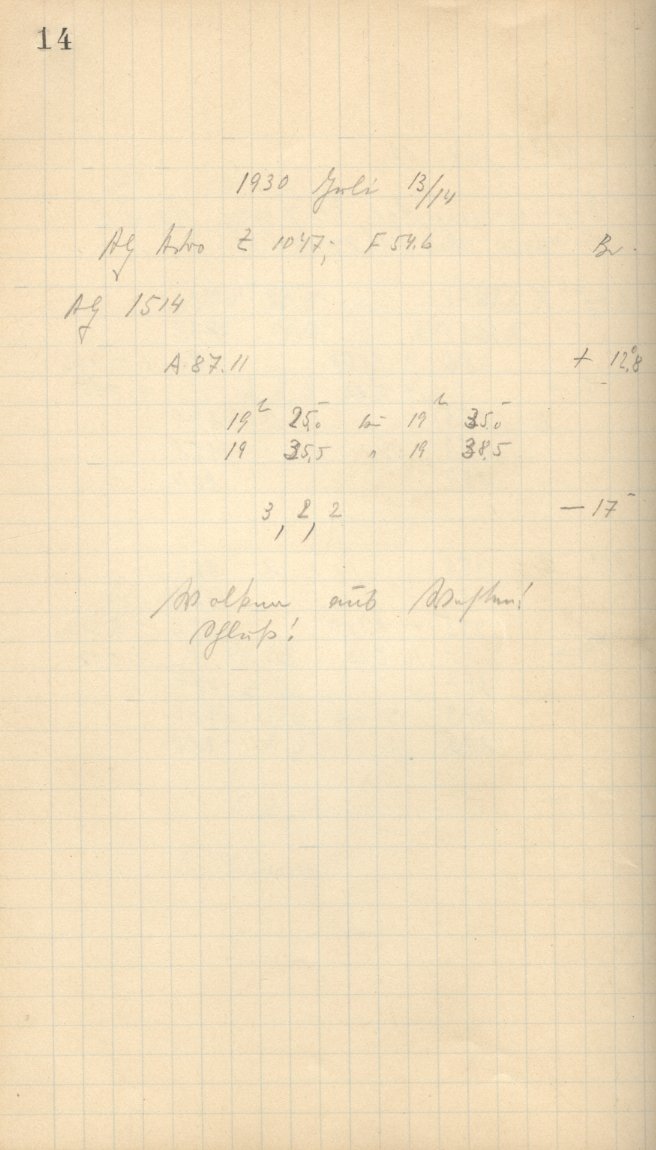 14
1930 Juli 13/14
AG Astro Z 1047; F 54.6 Br.
AG 1514
A 87.11 + 12°,8
19h 25,0 bis 19h 35,0
19 35,5 " 19 38,5
3, 2, 2 — 17
Wolken aus Westen!
Schluß!